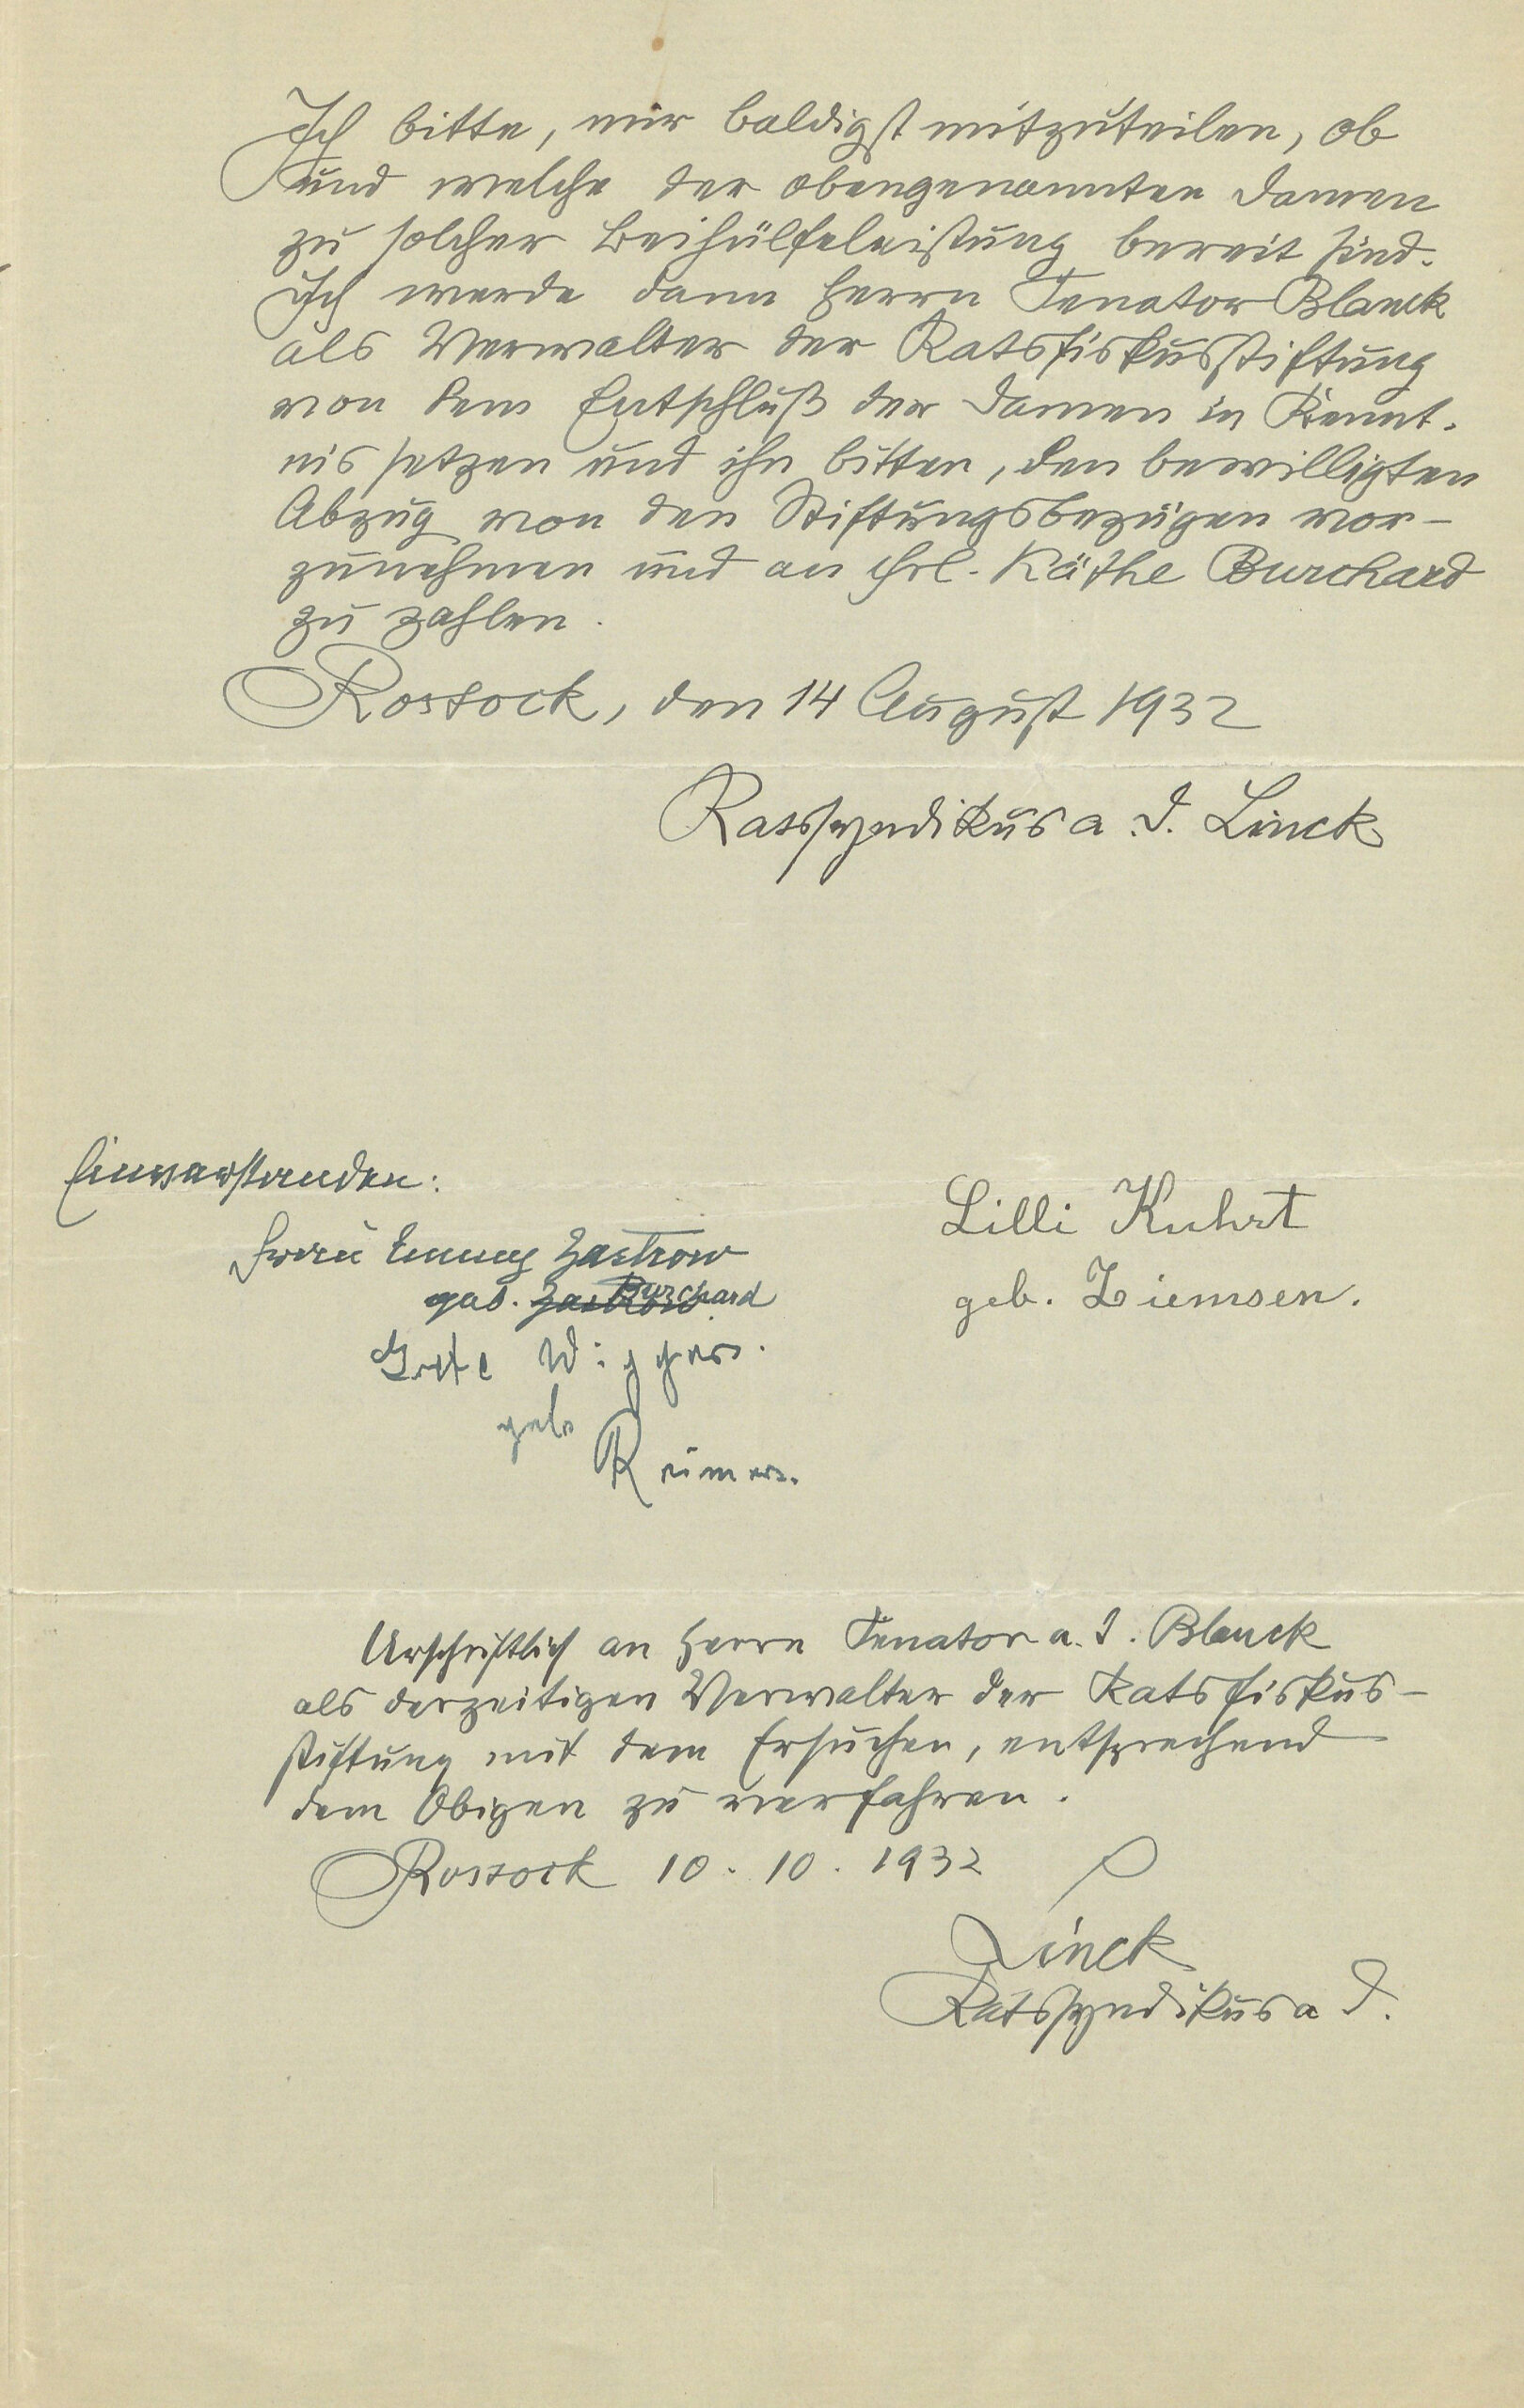 Ich bitte, mir baldigst mitzuteilen, ob
und welche der obengenannten Damen
zu solcher Beihülfeleistung bereit sind.
Ich werde dann Herrn Senator Blanck
als Verwalter der Ratsfiskusstiftung
von dem Entschluß der Damen in Kennt-
nis setzen und ihn bitten, den bewilligten
Abzug von den Stiftungsbezügen vor-
zunehmen und an Frl. Käthe Burchard
zu zahlen.
Rostock, den 14 August 1932
Ratssyndikus a. D. Linck
Einverstanden:
Frau Emmy Zastrow
geb. Zastrow Burchard
Grete Wiggers.
geb
Reimers.
Lilli Kuhrt
geb. Ziemsen.
Urschriftlich an Herrn Senator a. D. Blanck
als derzeitigen Verwalter der Ratsfiskus-
stiftung mit dem Ersuchen, entsprechend
dem Obigen zu verfahren.
Rostock 10. 10. 1932
Linck
Ratssyndikus a D.